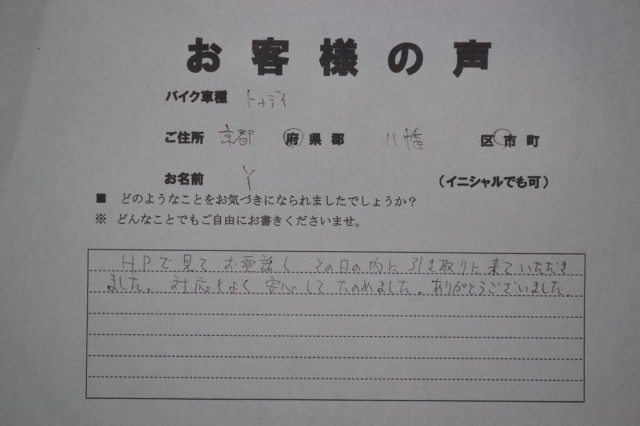 お客様の声
バイク車種 トゥデイ
ご住所 京都 府県郡 八幡 区市町
お名前 Y (イニシャルでも可)
■ どのようなことをお気づきになられましたでしょうか?
※ どんなことでもご自由にお書きくださいませ。
HPで見てお電話し その日の内に引き取りに来ていただき
ました。対応もよく安心してたのめました。ありがとうございました。